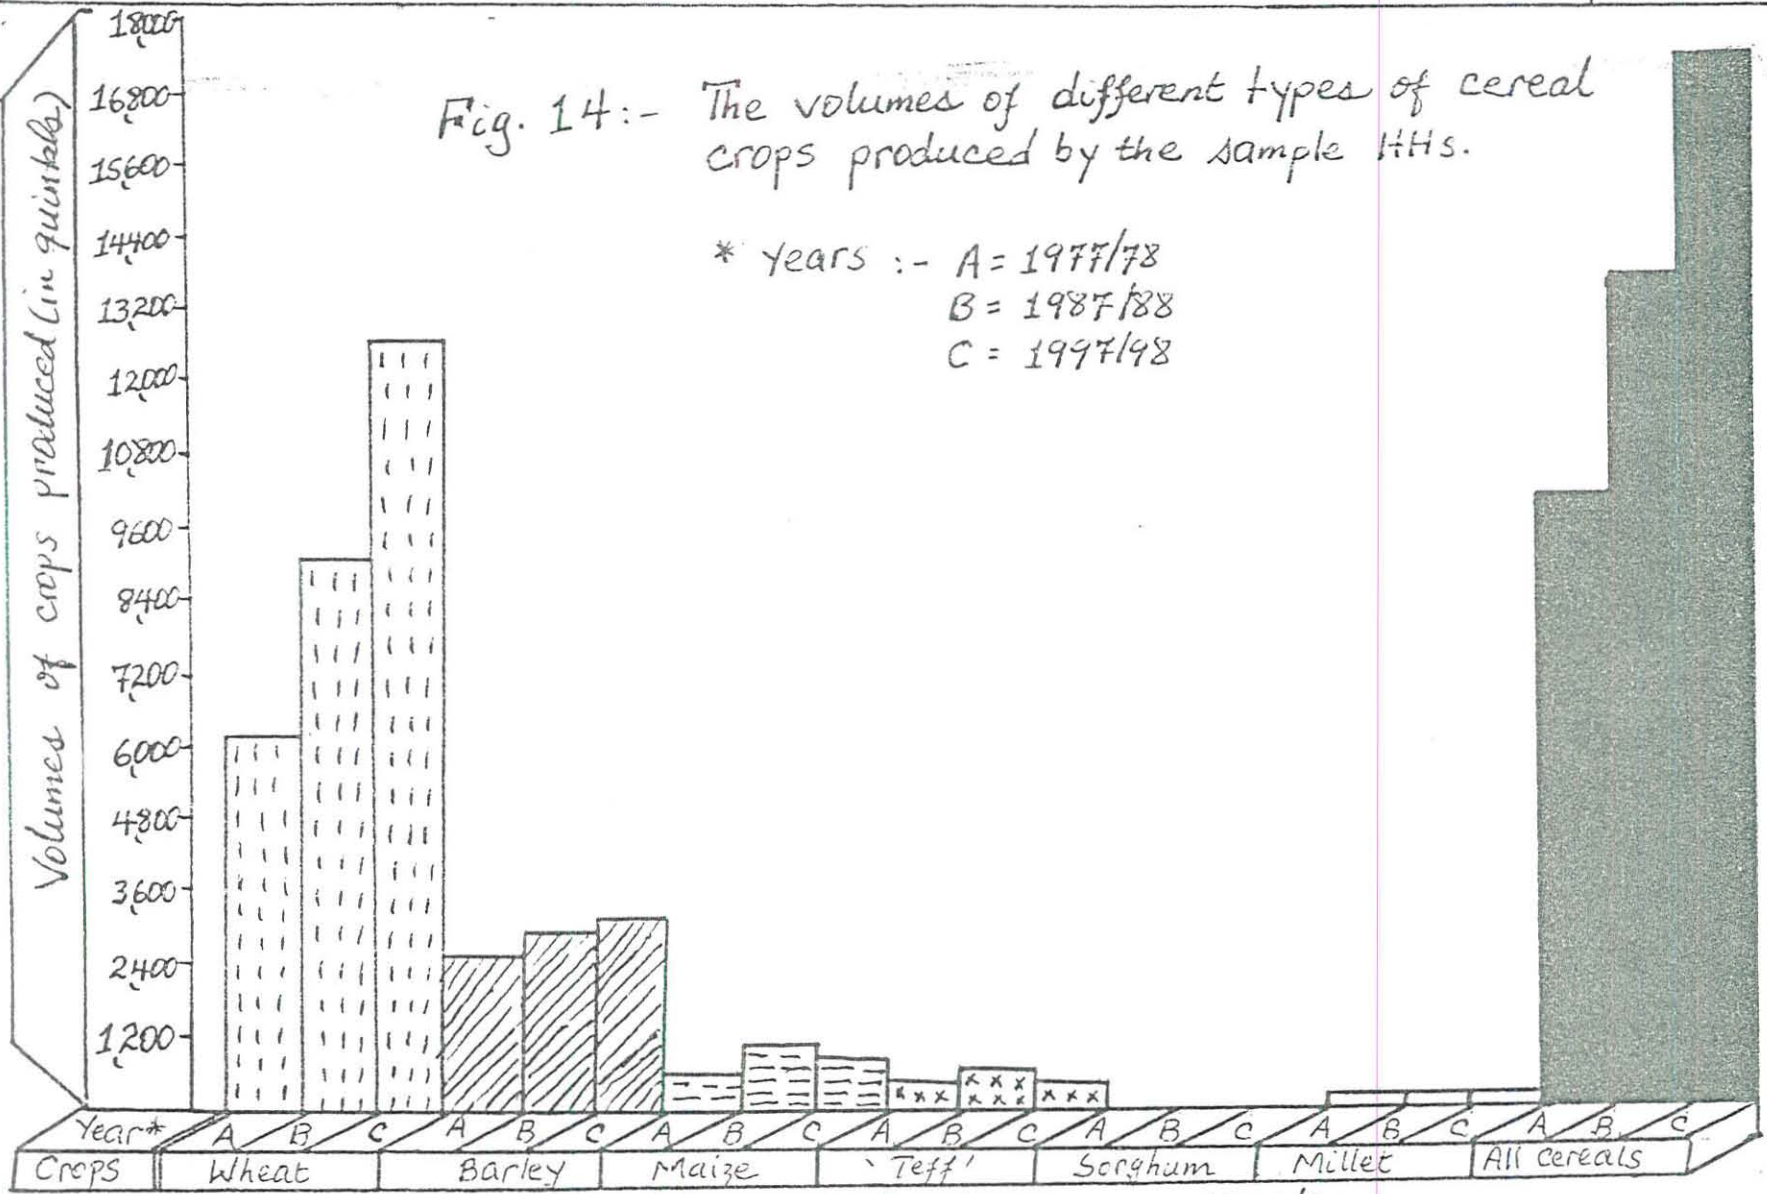 Fig. 14:- The volumes of different types of cereal
crops produced by the sample HHs.
* Years :- A = 1977/78
B = 1987/88
C = 1997/98
Volumes of crops produced (in quintals)
18,000
16,800
15,600
14,400
13,200
12,000
10,800
9,600
8,400
7,200
6,000
4,800
3,600
2,400
1,200
Year* A B C A B C A B C A B C A B C A B C A B C
Crops Wheat Barley Maize 'Teff' Sorghum Millet All cereals